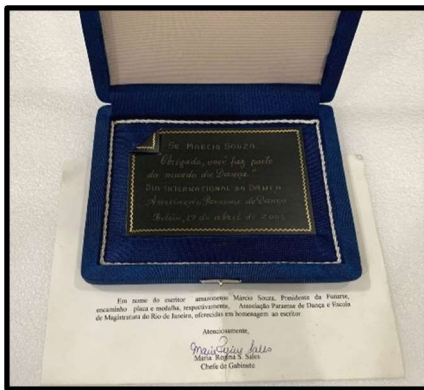 Sr. MARCIO SOUZA
"Obrigado, você faz parte
do mundo da Dança."
DIA INTERNATIONAL DA DANÇA
Associação Paraense de Dança
Belém, de abril de
Em nome do escritor amazonense Márcio Souza, Presidente da Funarte,
encaminho placa e medalha, respectivamente, Associação Paraense de Dança e Escola
de Magistratura do Rio de Janeiro, oferecidas em homenagem ao escritor.
Atenciosamente,
Maria Regina S. Sales
Chefe de Gabinete